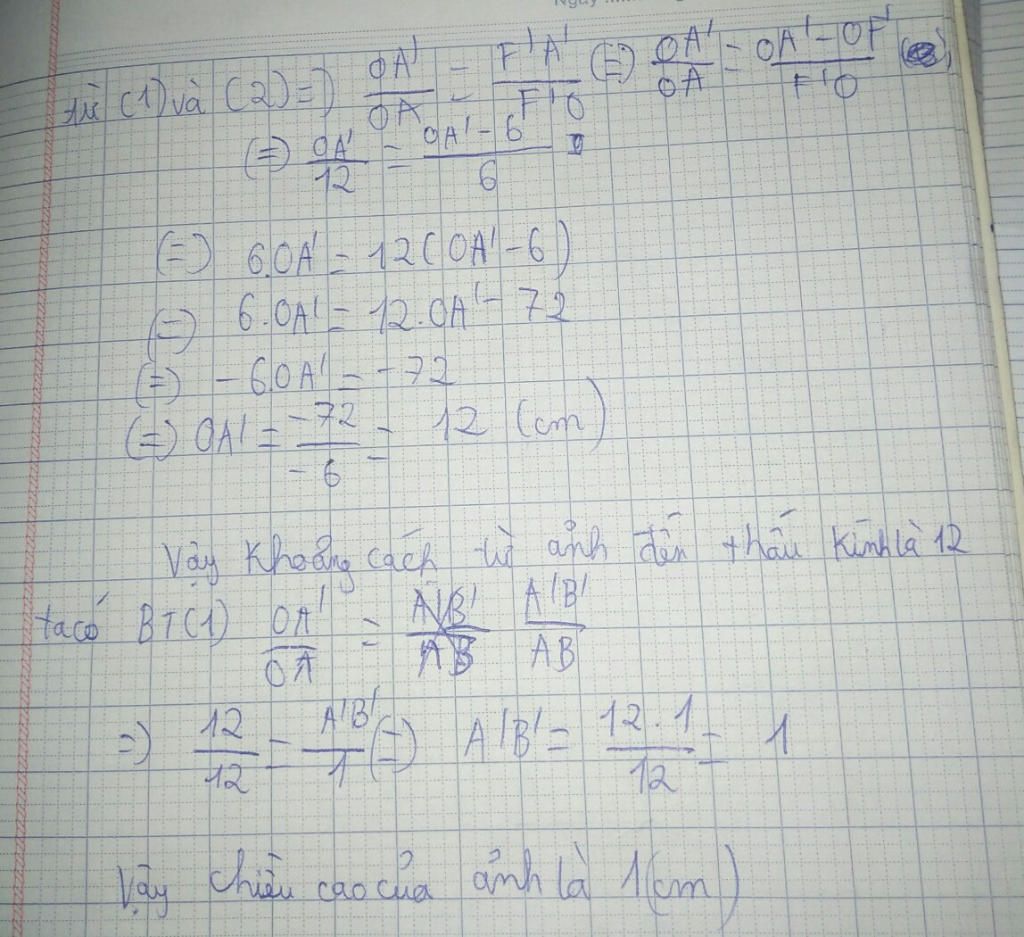 Ngày
từ (1) và (2) =) OA'/OA = F'A'/F'O (=) OA'/OA = OA' - OF'/F'O
(=) OA'/12 = OA' - 6/6
(=) 6.OA' = 12(OA' - 6)
(=) 6.OA' = 12.OA' - 72
(=) -6.OA' = -72
(=) OA' = -72/-6 = 12 (cm)
Vậy khoảng cách từ ảnh đến thấu kính là 12
ta có BT(1) OA'/OA = A'B'/AB
=) 12/12 = A'B'/1 (=) A'B' = 12.1/12 = 1
Vậy chiều cao của ảnh là 1(cm)